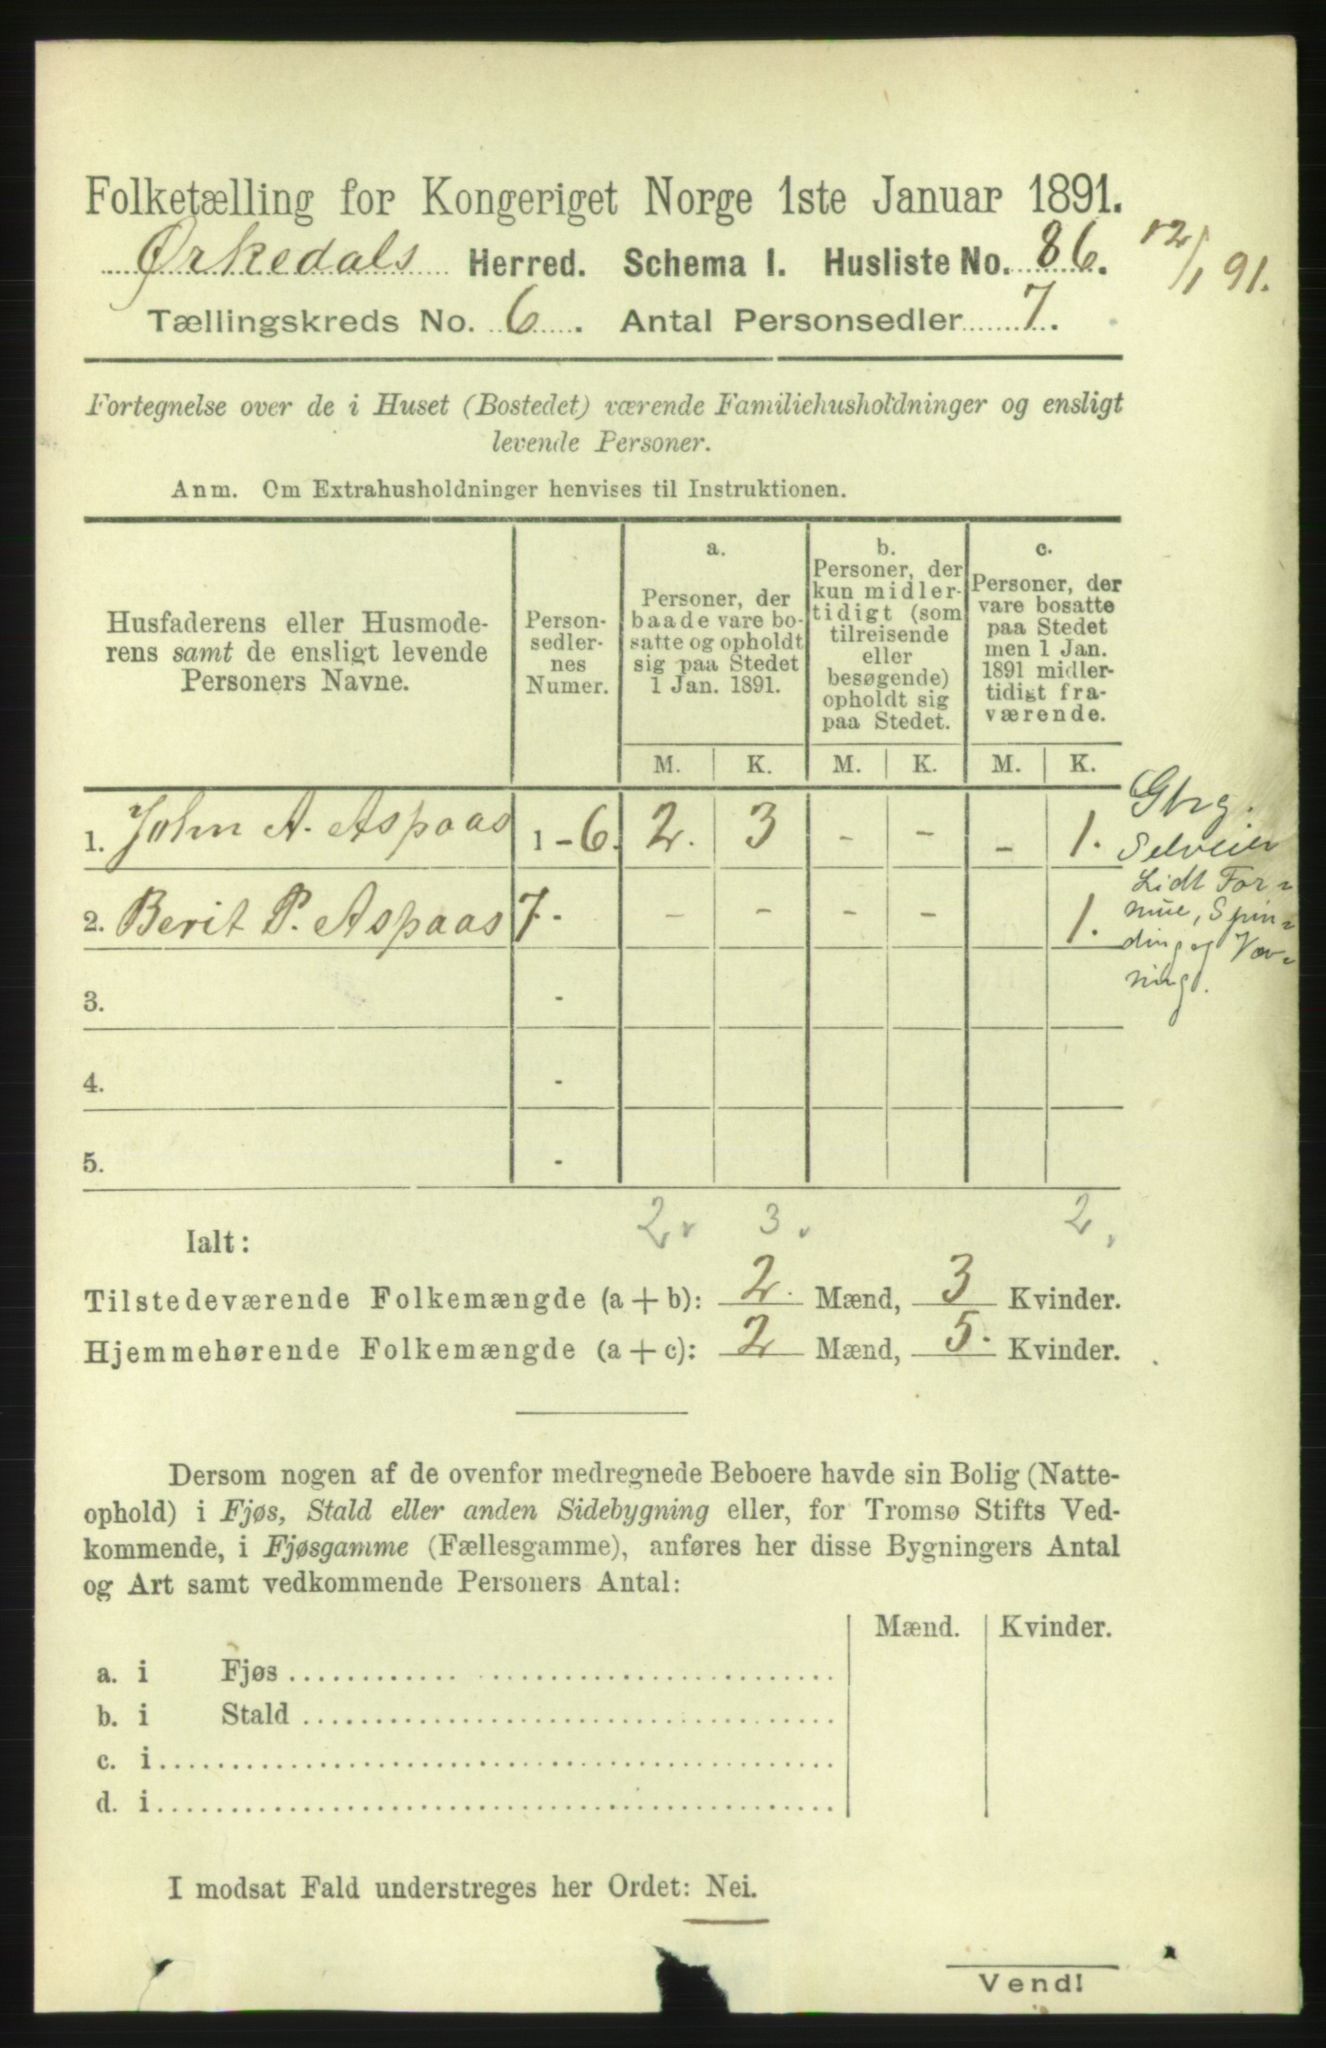 Folketælling for Kongeriget Norge 1ste Januar 1891.
Ørkedals Herred. Schema I. Husliste No. 86. 12/1 91.
Tællingskreds No. 6. Antal Personsedler 7.
Fortegnelse over de i Huset (Bostedet) værende Familiehusholdninger og ensligt
levende Personer.
Anm. Om Extrahusholdninger henvises til Instruktionen.
Husfaderens eller Husmode-
rens samt de ensligt levende
Personers Navne.
Person-
sedler-
nes
Numer.
a.
Personer, der
baade vare bo-
satte og opholdt
sig paa Stedet
1 Jan. 1891.
b.
Personer, der
kun midler-
tidigt (som
tilreisende
eller
besøgende)
opholdt sig
paa Stedet.
c.
Personer, der
vare bosatte
paa Stedet
men 1 Jan.
1891 midler-
tidigt fra-
værende.
M. K. M. K. M. K.
1. John A. Aspaas 1 - 6. 2. 3 - - - 1.
Gbrg.
Selveier
2. Berit P. Aspaas 7 - - - - - 1.
Lidt For-
mue, Spin-
ding og Væv-
ning.
3. -
4. -
5. -
2. 3. 2.
Ialt:
Tilstedeværende Folkemængde (a + b): 2. Mænd, 3 Kvinder.
Hjemmehørende Folkemængde (a + c): 2 Mænd, 5. Kvinder.
Dersom nogen af de ovenfor medregnede Beboere havde sin Bolig (Natte-
ophold) i Fjøs, Stald eller anden Sidebygning eller, for Tromsø Stifts Ved-
kommende, i Fjøsgamme (Fællesgamme), anføres her disse Bygningers Antal
og Art samt vedkommende Personers Antal:
Mænd. Kvinder.
a. i Fjøs
b. i Stald
c. i
d. i
I modsat Fald understreges her Ordet: Nei.
Vend!